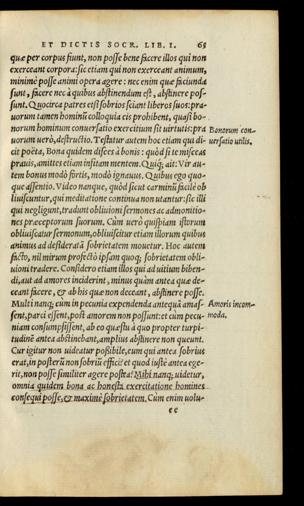 ET DICTIS SOCR. LIB. I. 65
quæ per corpus fiunt, non posse bene facere illos qui non
exerceant corpora: sic etiam qui non exerceant animum,
minime posse animi opera agere: nec enim quæ faciunda
sunt, facere nec à quibus abstinendum est, abstinere pos-
sunt. Quocirca patres etsi sobrios sciant liberos suos: pra-
uorum tamen hominũ colloquia eis prohibent, quasi bo-
norum hominum conuersatio exercitium sit uirtutis: pra
uorum uerò, destructio. Testatur autem hoc etiam qui di-
cit poëta, Bona quidem disces à bonis: quòd si te misceas
prauis, amittes etiam insitam mentem. Quiq; ait: Vir au-
tem bonus modò fortis, modò ignauus. Quibus ego quo-
que assentio. Video nanque, quòd sicut carminũ facile ob
liuiscuntur, qui meditatione continua non utantur: sic illi
qui negligunt, tradunt obliuioni sermones ac admonitio-
nes præceptorum suorum. Cùm uerò quispiam istorum
obliuiscatur sermonum, obliuiscitur etiam illorum quibus
animus ad desideratã sobrietatem mouetur. Hoc autem
facto, nil mirum profectò ipsam quoq; sobrietatem obli-
uioni tradere. Considero etiam illos qui ad uitium biben-
di, aut ad amores inciderint, minus quàm antea quæ de-
ceant facere, & ab his quæ non deceant, abstinere posse.
Multi nanq; cùm in pecunia expendenda antequã amas-
sent, parci essent, post amorem non possunt: et cùm pecu-
niam consumpsissent, ab eo quæstu à quo propter turpi-
tudinẽ antea abstinebant, amplius abstinere non queunt.
Cur igitur non uideatur possibile, eum qui antea sobrius
erat, in posterũ non sobriũ effici? et quod iustè antea ege-
rit, non posse similiter agere postea? Mihi nanq; uidetur,
omnia quidem bona ac honesta exercitatione homines
consequi posse, & maximè sobrietatem. Cùm enim uolu-
cc
Bonorum con-
uersatio utilis.
Amoris incom-
moda.